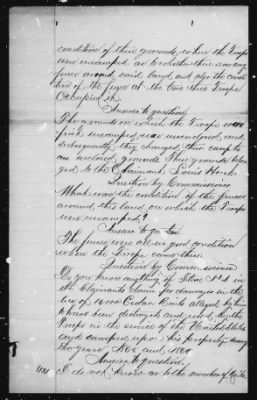 condition of these grounds, when the Troops
were encamped as to whether there was any
fence around said land, and also the condi
tion of the fence at the time the Troops
Occupied it.
Answer to question
The ground on which the Troops were
first encamped, was unenclosed, and
subsequently they changed their camp to
an enclosed grounds. These grounds belon
ged to the Claimant Louis
Question by Commissioner
What was the condition of the fences
around, this land on which the Troops
were encamped?
Answer to question
The fence were all in good condition
when the Troops came there.
Question by Commissioner
Do you know anything of Item No 1 in
the Claimants Claim for damages in the
loss of 16000 Cedar Rails alleged by him
to have been destroyed and used by the
Troops in the service of the United States
encamped upon his property during
the years 186 and 186
Answer to question.
I do not know as to the number of Rails